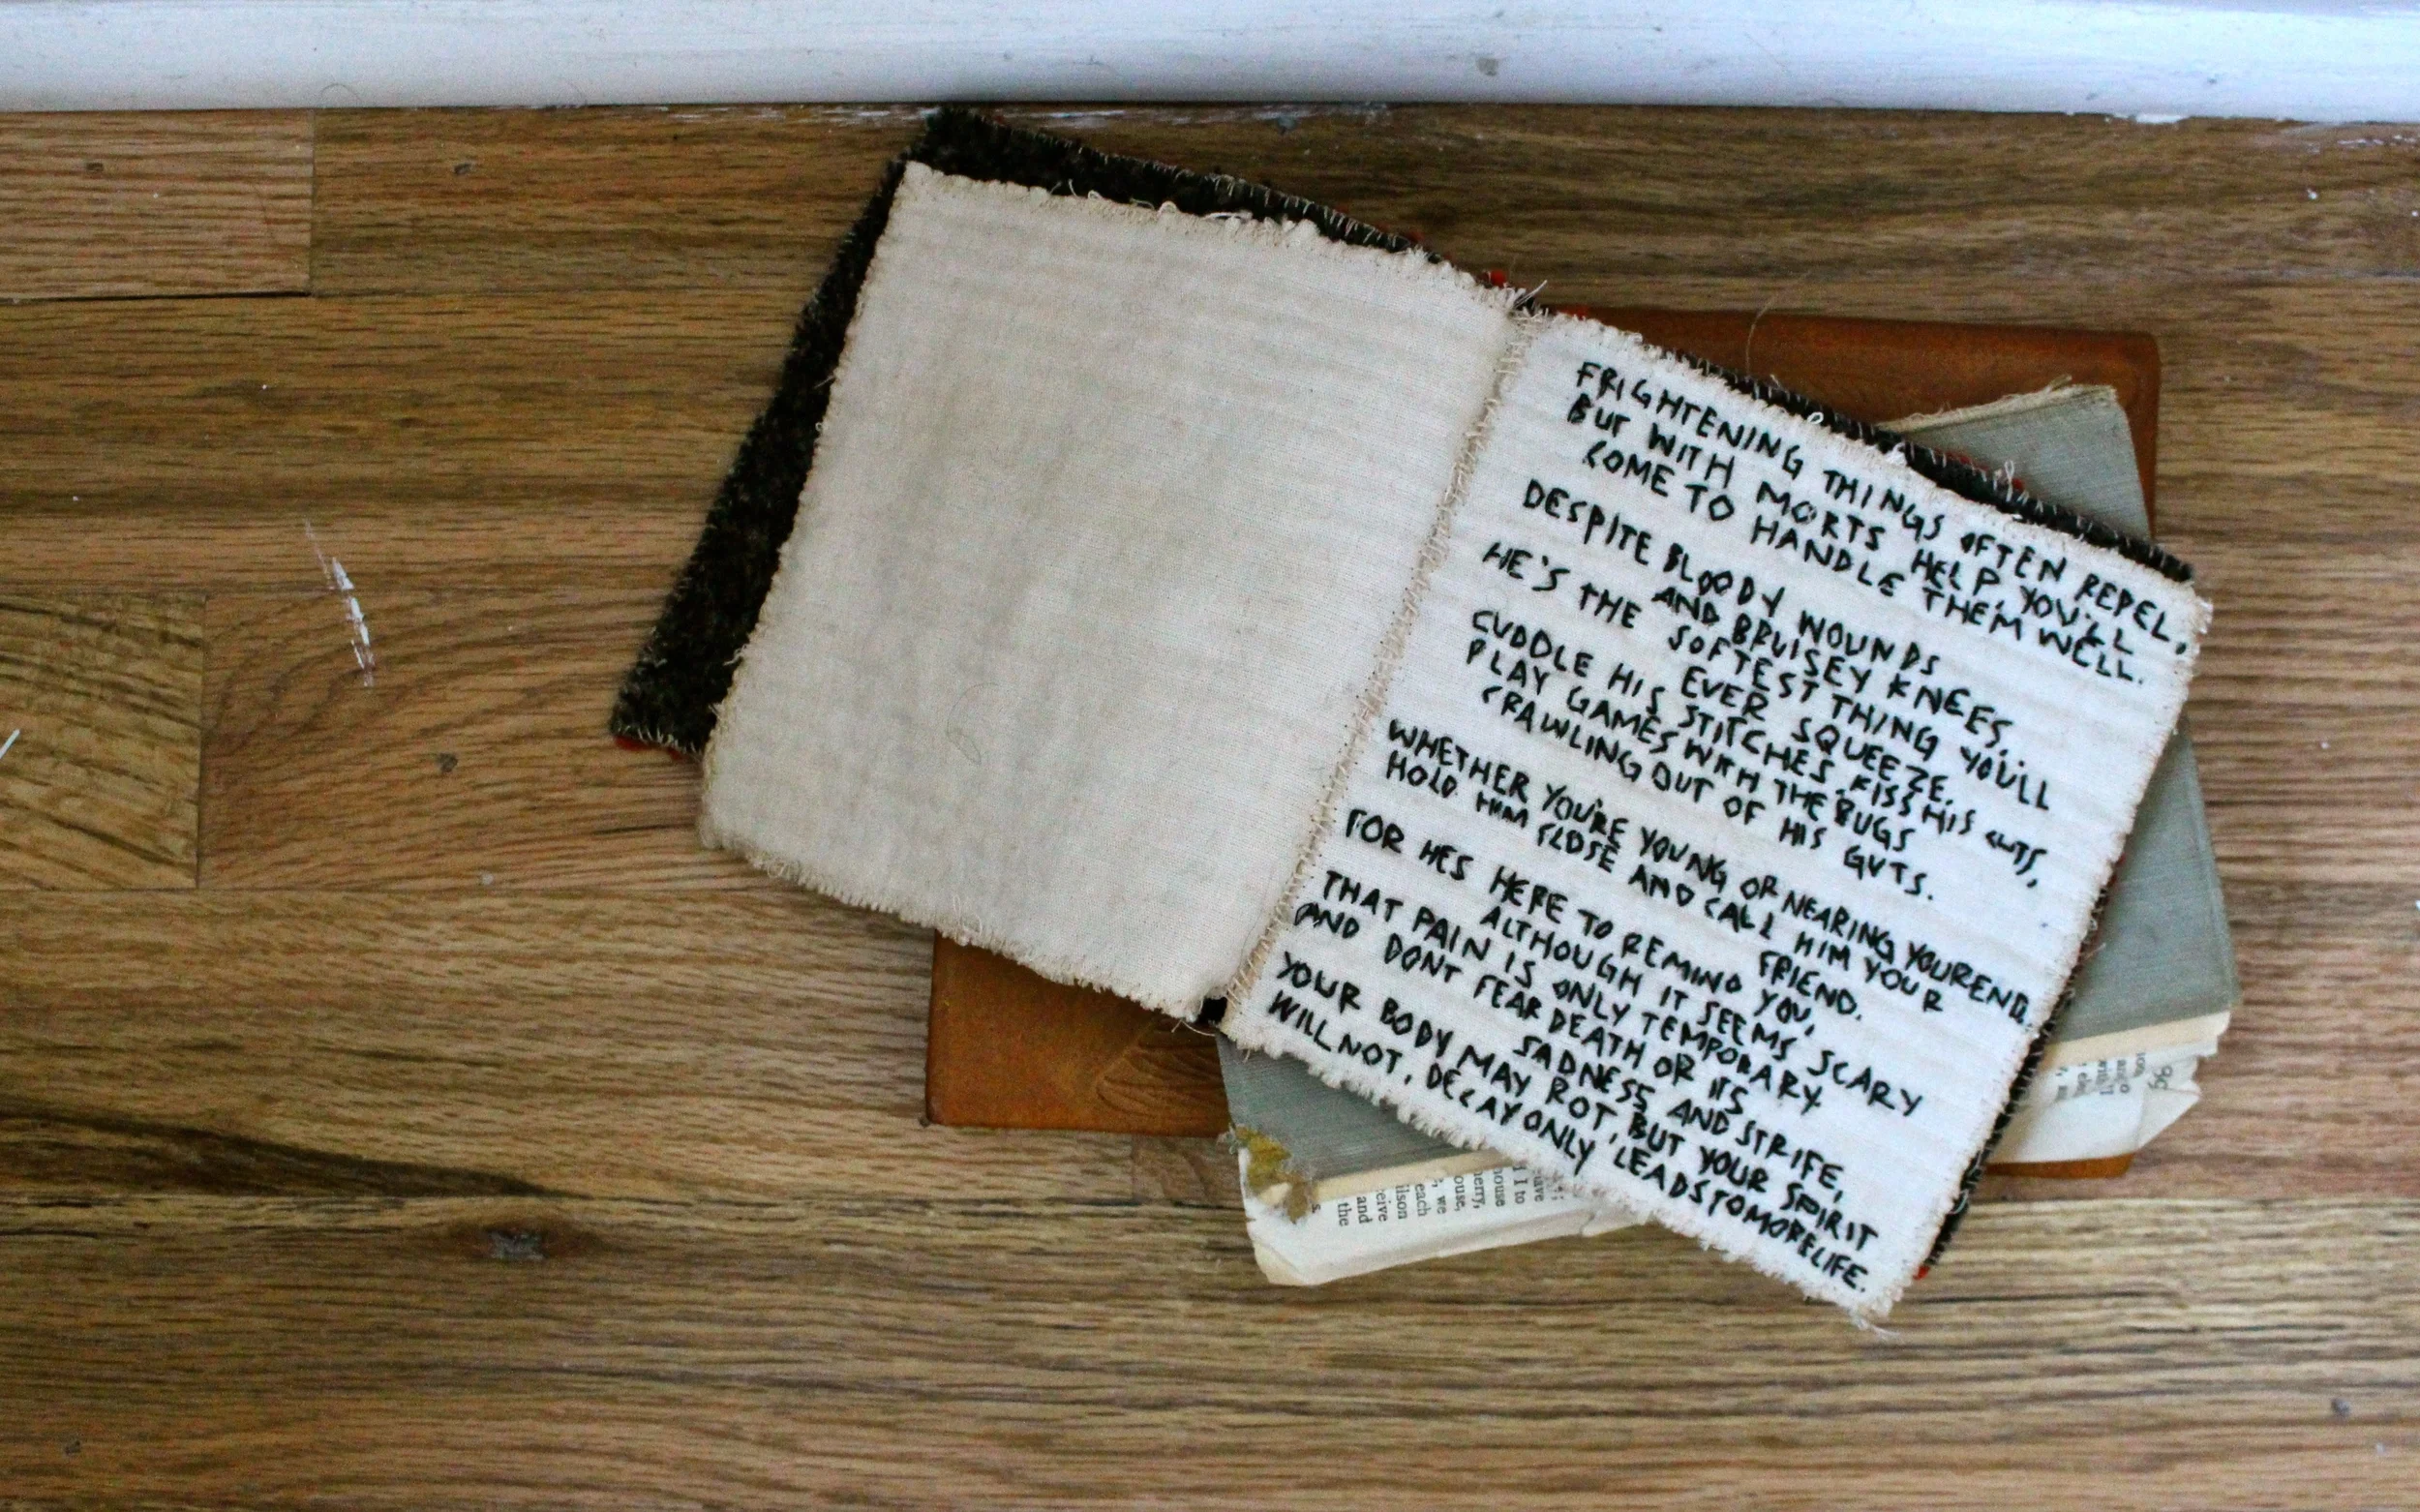 FRIGHTENING THINGS OFTEN REPEL,
BUT WITH MORTS HELP, YOU'LL
COME TO HANDLE THEM WELL.
DESPITE BLOODY WOUNDS
AND BRUISEY KNEES.
HE'S THE SOFTEST THING YOU'LL
EVER SQUEEZE.
CUDDLE HIS STITCHES, KISS HIS CUTS,
PLAY GAMES WITH THE BUGS
CRAWLING OUT OF HIS GUTS.
WHETHER YOU'RE YOUNG OR NEARING YOUR END,
HOLD HIM CLOSE AND CALL HIM YOUR
FRIEND.
FOR HES HERE TO REMIND YOU,
ALTHOUGH IT SEEMS SCARY
THAT PAIN IS ONLY TEMPORARY.
AND DONT FEAR DEATH OR ITS
SADNESS AND STRIFE,
YOUR BODY MAY ROT, BUT YOUR SPIRIT
WILL NOT, DECAY ONLY LEADS TO MORE LIFE.
the
and
ceive
ilson
each
, we
ouse,
berry,
house
I to
have